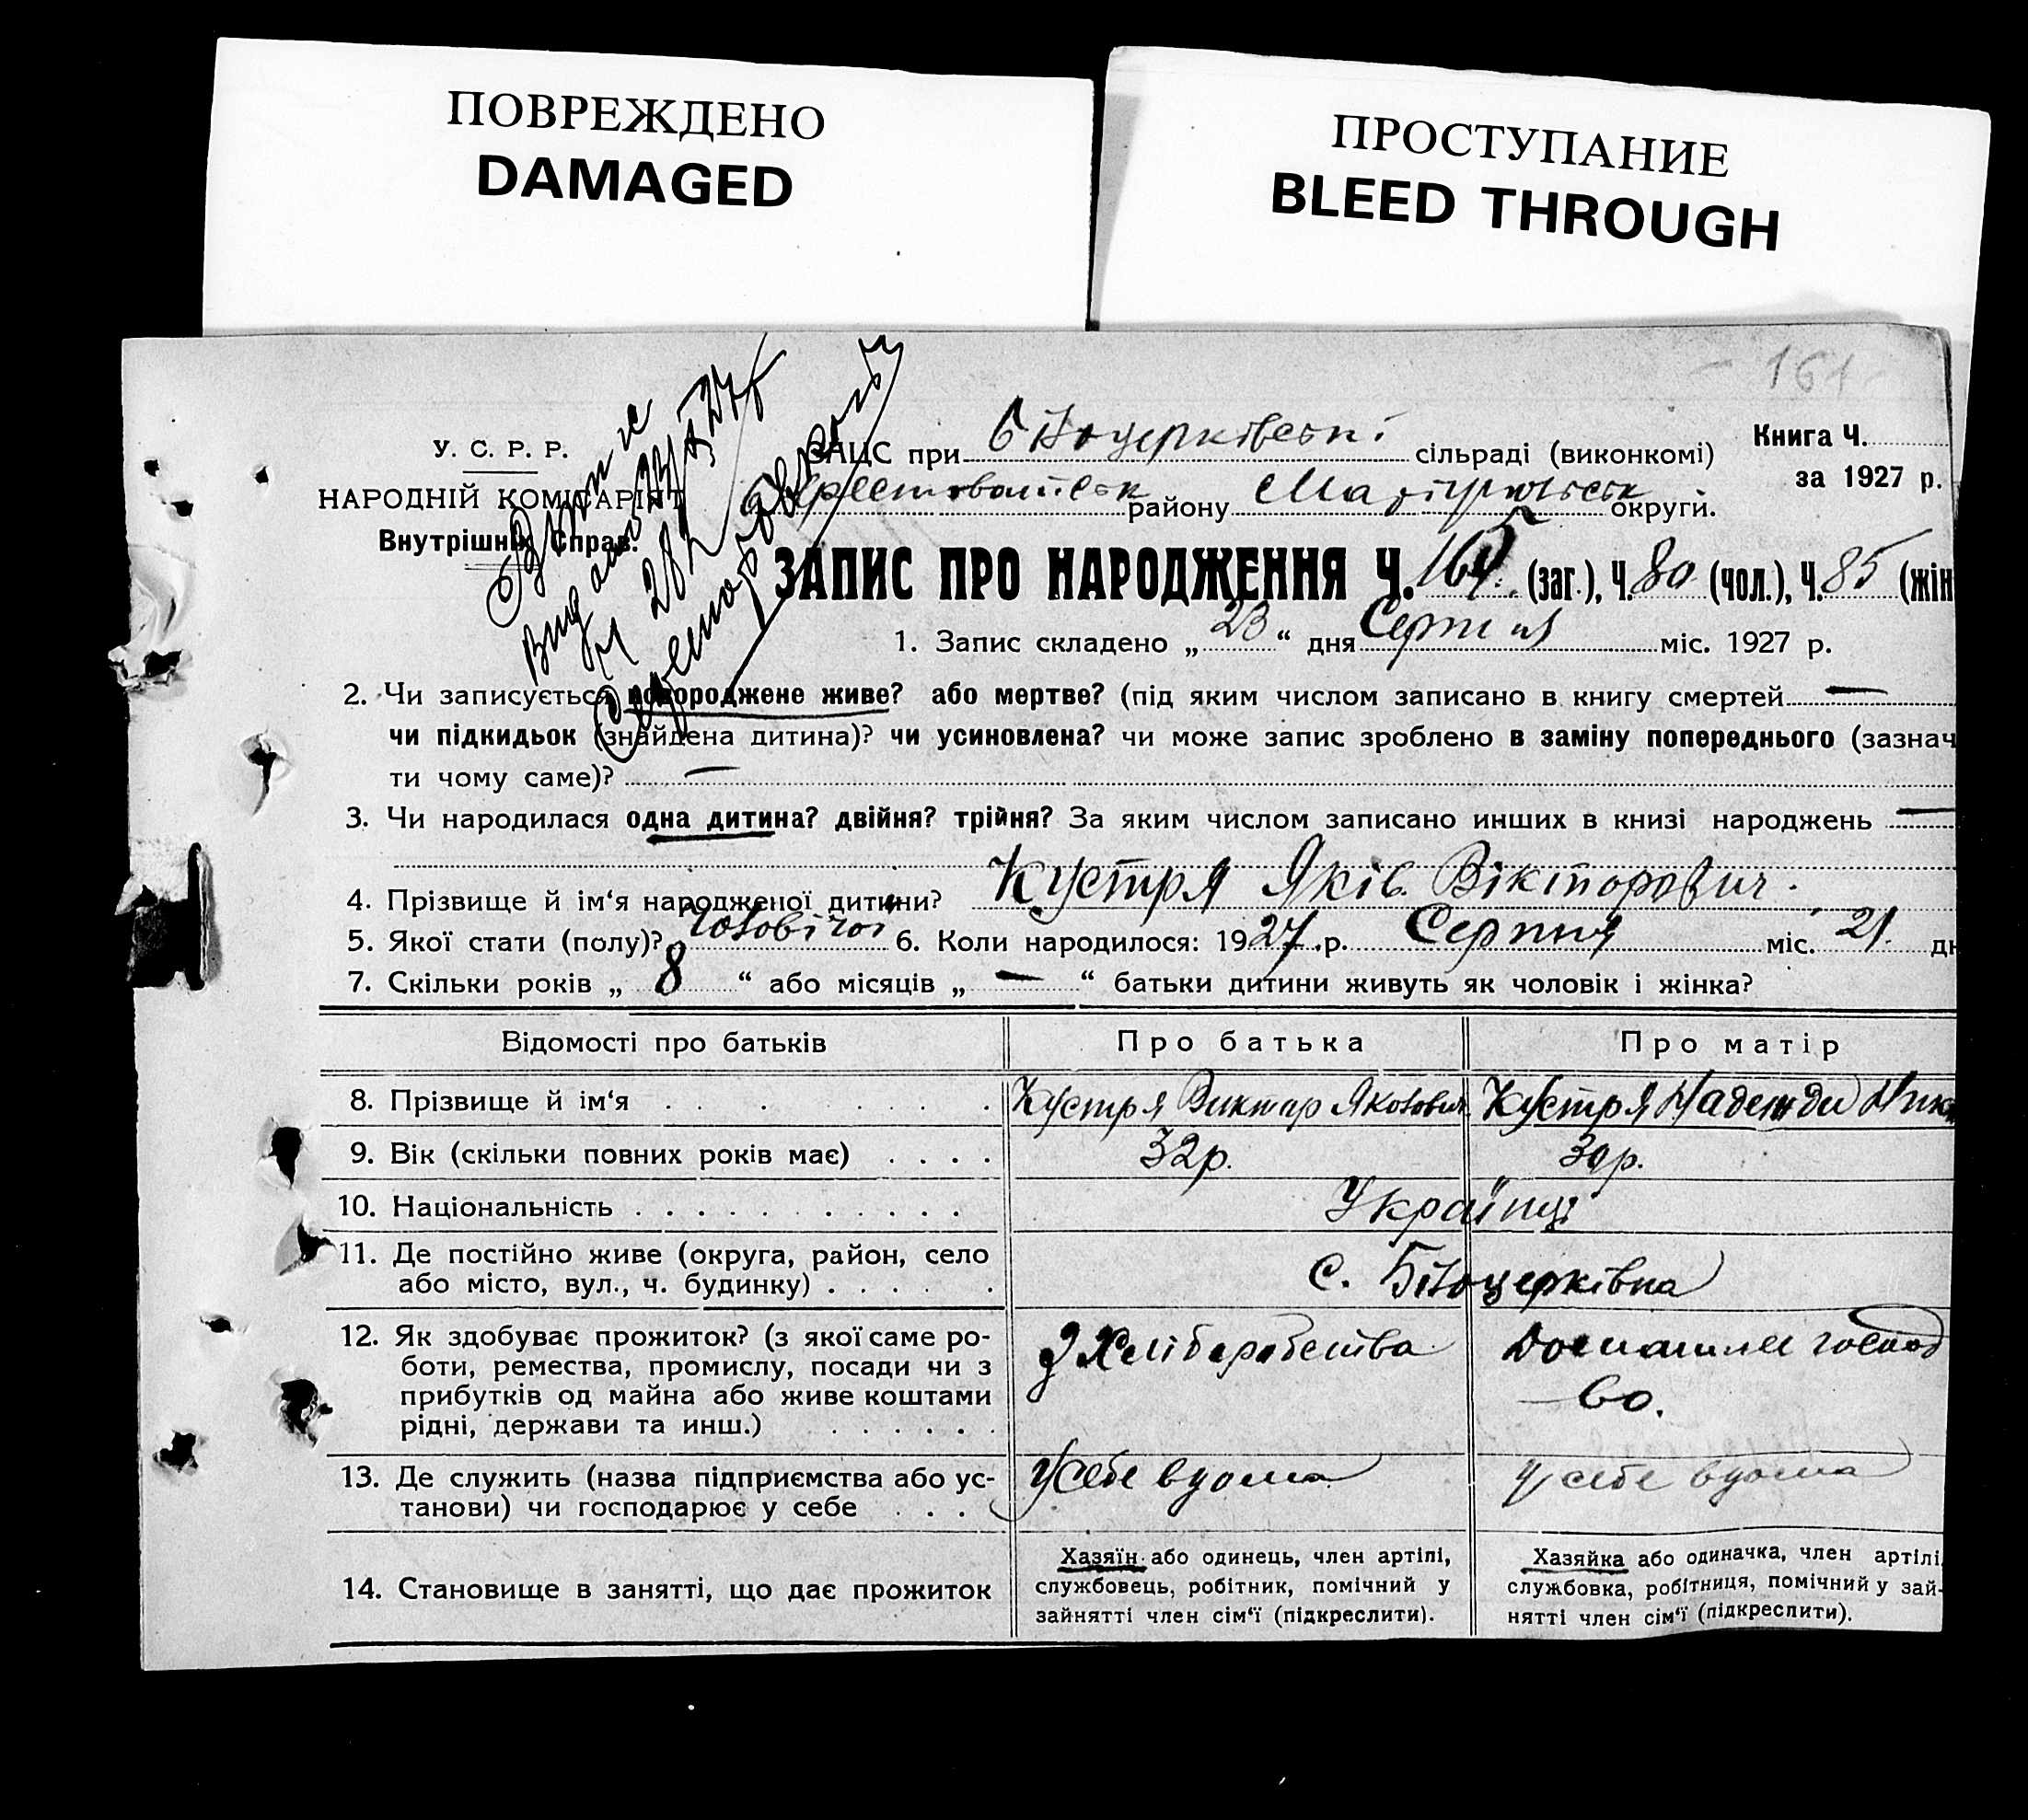 ПОВРЕЖДЕНО
DAMAGED
ПРОСТУПАНИЕ
BLEED THROUGH
161
У. С. Р. Р.
НАРОДНІЙ КОМІСАРІЯТ
Внутрішніх Справ.
ЗАЦС при Білоцерківські сільраді (виконкомі)
району округи.
Книга Ч.
за 1927 р.
ЗАПИС ПРО НАРОДЖЕННЯ Ч. 165 (заг.), Ч. 80 (чол.), Ч. 85 (жін
1. Запис складено „ 23 “ дня Серпня міс. 1927 р.
2. Чи записується новороджене живе? або мертве? (під яким числом записано в книгу смертей —
чи підкидьок (знайдена дитина)? чи усиновлена? чи може запис зроблено в заміну попереднього (зазнач
ти чому саме)? —
3. Чи народилася одна дитина? двійня? трійня? За яким числом записано инших в книзі народжень —
4. Прізвище й ім‘я народженої дитини? Кустря Яків Вікторович.
5. Якої стати (полу)? чоловічої 6. Коли народилося: 1927 р. Серпня міс. 21. дн
7. Скільки років „ 8 “ або місяців „ — “ батьки дитини живуть як чоловік і жінка?
Відомості про батьків
Про батька
Про матір
8. Прізвище й ім‘я
Кустря Виктар Яковович
Кустря Надежди Ник
9. Вік (скільки повних років має)
32р.
30р.
10. Національність
Українці
11. Де постійно живе (округа, район, село
або місто, вул., ч. будинку)
с. Білоцерківка
12. Як здобуває прожиток? (з якої саме ро-
боти, ремества, промислу, посади чи з
прибутків од майна або живе коштами
рідні, держави та инш.)
З Хліборобства
Домашнее господ
—во.
13. Де служить (назва підприємства або ус-
танови) чи господарює у себе
У себе вдома
у себе вдома
14. Становище в занятті, що дає прожиток
Хазяїн або одинець, член артілі,
службовець, робітник, помічний у
зайнятті член сім‘ї (підкреслити).
Хазяйка або одиначка, член артілі
службовка, робітниця, помічний у зай-
нятті член сім‘ї (підкреслити).